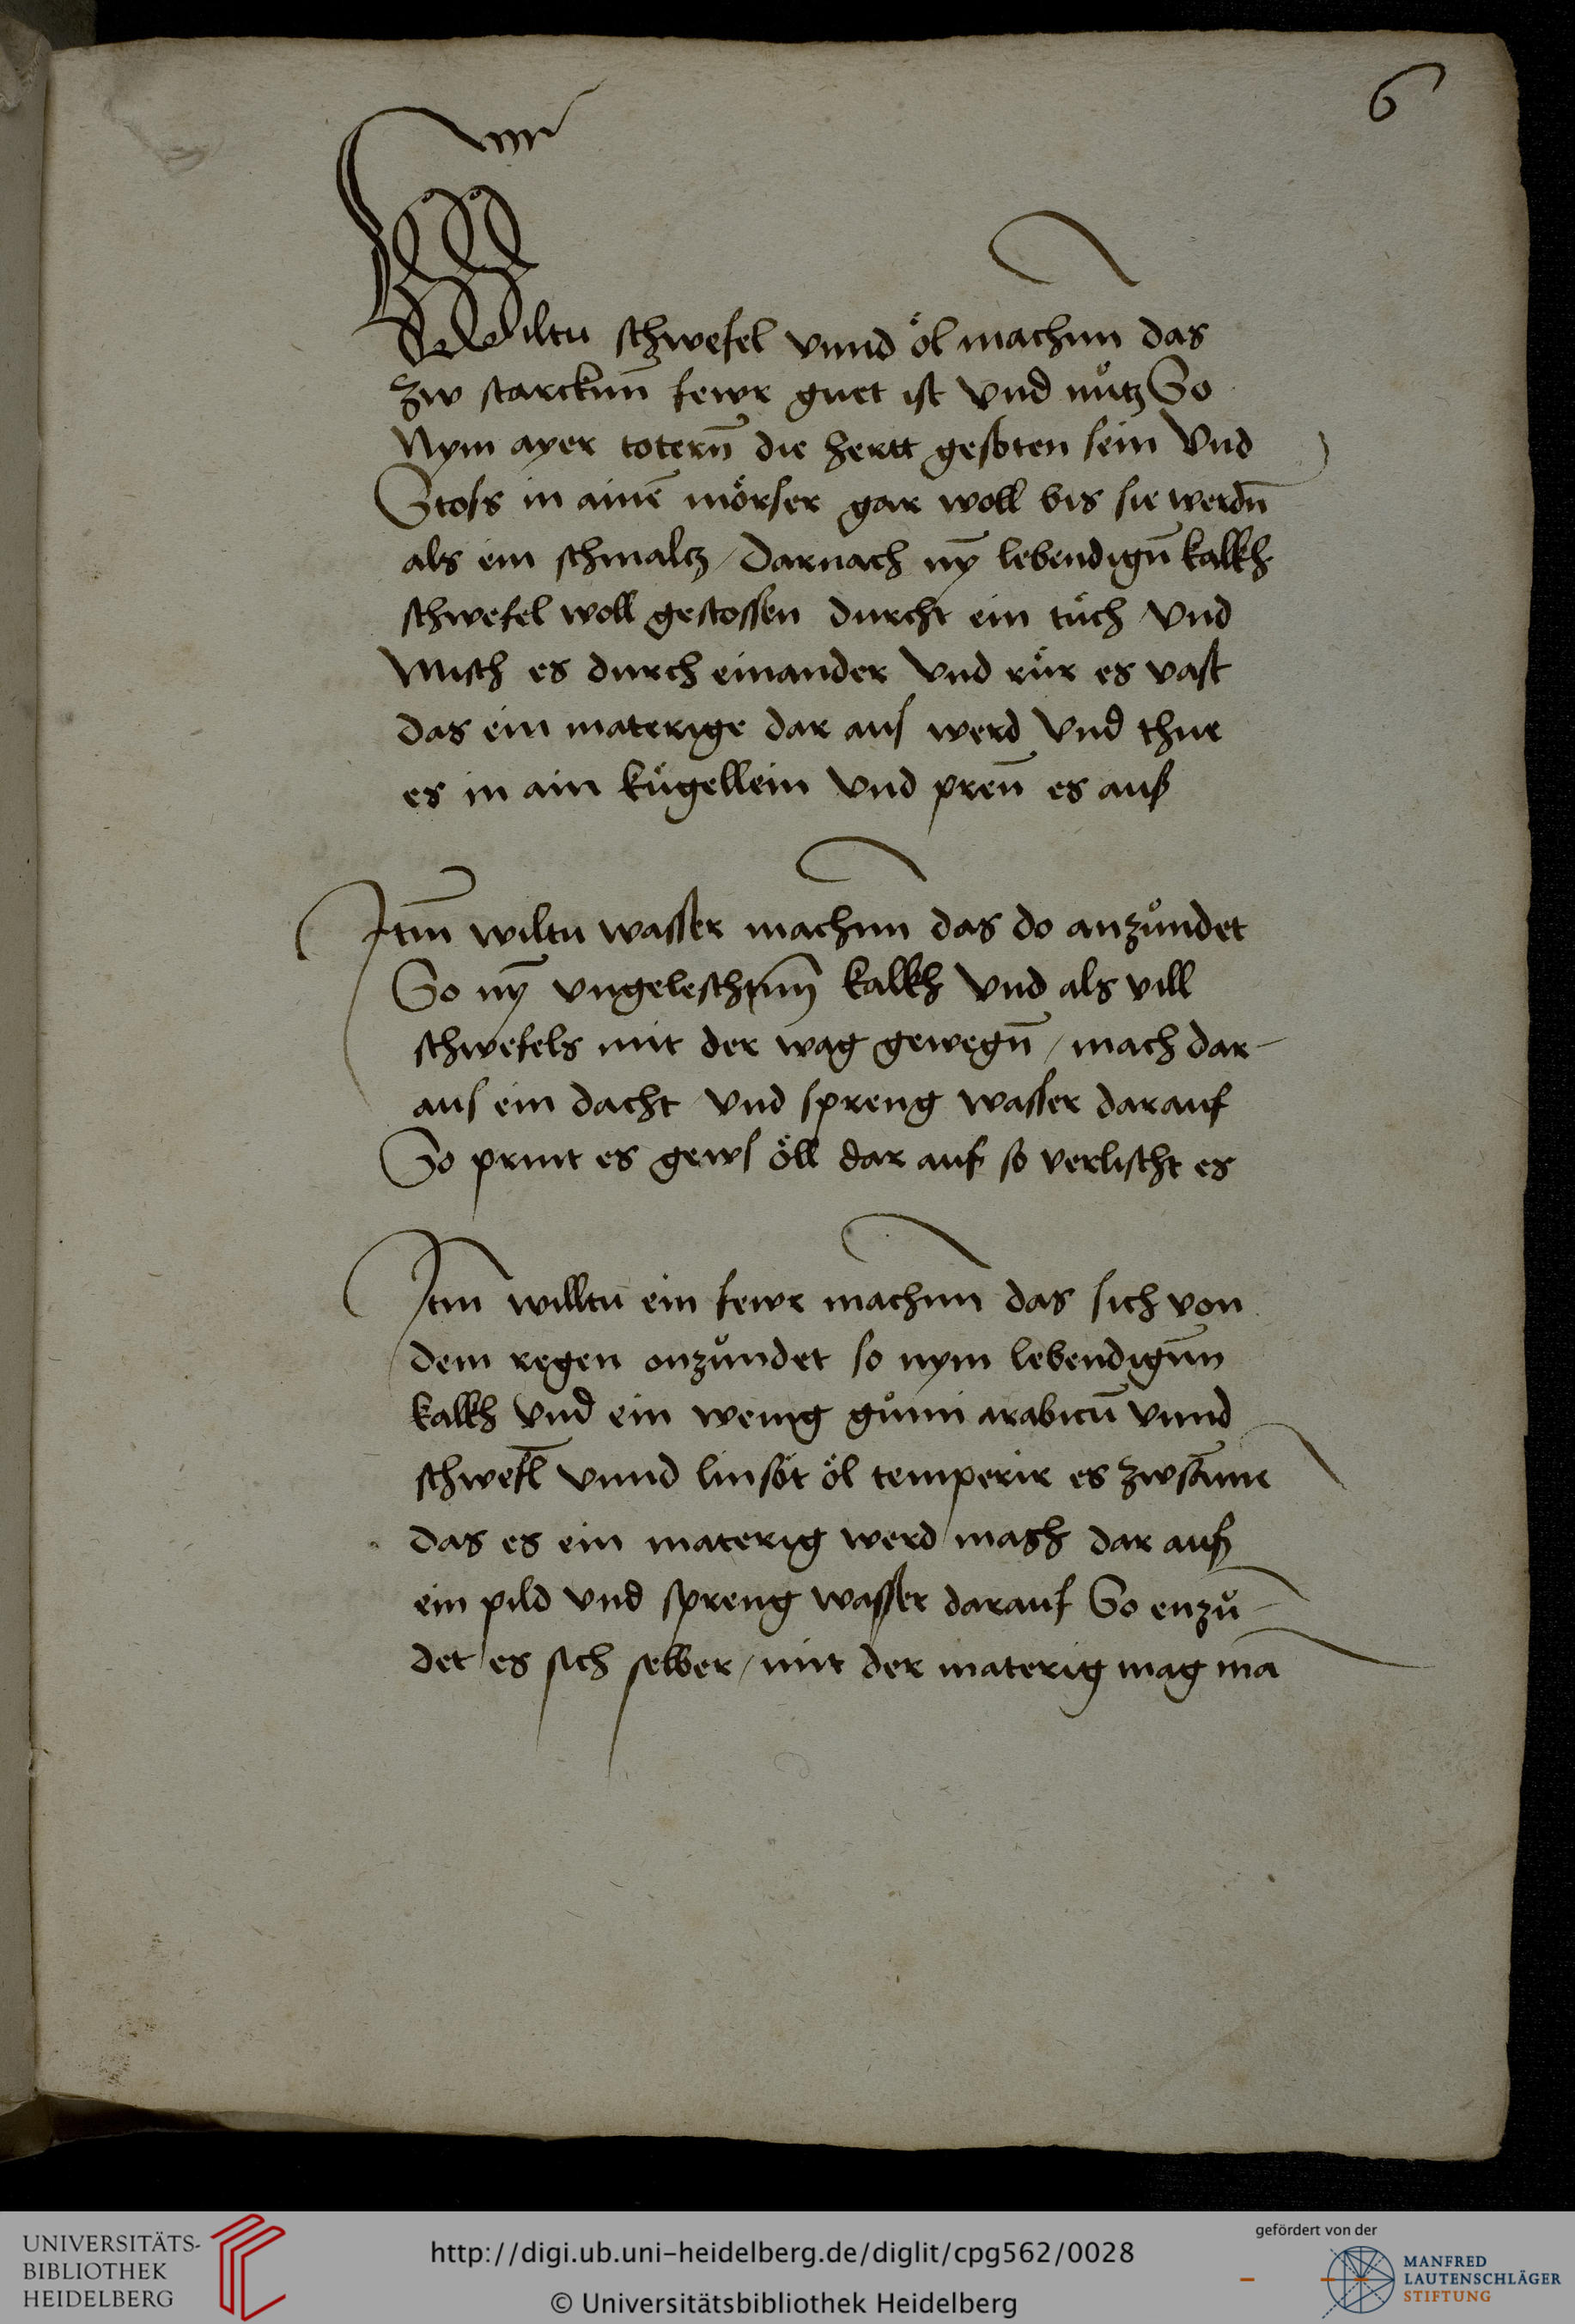 6
Wiltu schwefel vnnd öl machenn das
zw starckenn fewr guet ist vnd nůtz So
Nym ayer totern̄ die hertt gesoten sein vnd
Stoss in ainē mörser gar woll bis sie werdn̄
als ein schmaltz / darnach nȳ lebendign̄ kalkh
schwefel woll gestossen durcht ein tůch vnd
Misch es durch einander vnd růr es vast
das ein materige dar aus werd vnd thue
es in ain kůgellein vnd pren̄ es aus
Itm̄ wiltu wasser machenn das do anzůndet
So nȳ vngeleschtenn kalkh vnd als vill
schwefels mit der wag gewegn̄ / mach dar-
aus ein dacht vnd spreng wasser darauf
So print es gews öll dar auf so verlischt es
Itm̄ willtu ein fewr machenn das sich von
dem regen onzůndet so nym lebendigenn
kalkh vnd ein wenig gům̄i arabicū vnnd
schwefl̄ vnnd linsöt öl temperir es zwsāme
das es ein materig werd mach dar auß
ein pild vnd spreng wasser darauf So enzů-
det es sich selber / mit der materig mag mā
UNIVERSITÄTS-
BIBLIOTHEK
HEIDELBERG
http://digi.ub.uni-heidelberg.de/diglit/cpg562/0028
© Universitätsbibliothek Heidelberg
gefördert von der
MANFRED
LAUTENSCHLÄGER
STIFTUNG